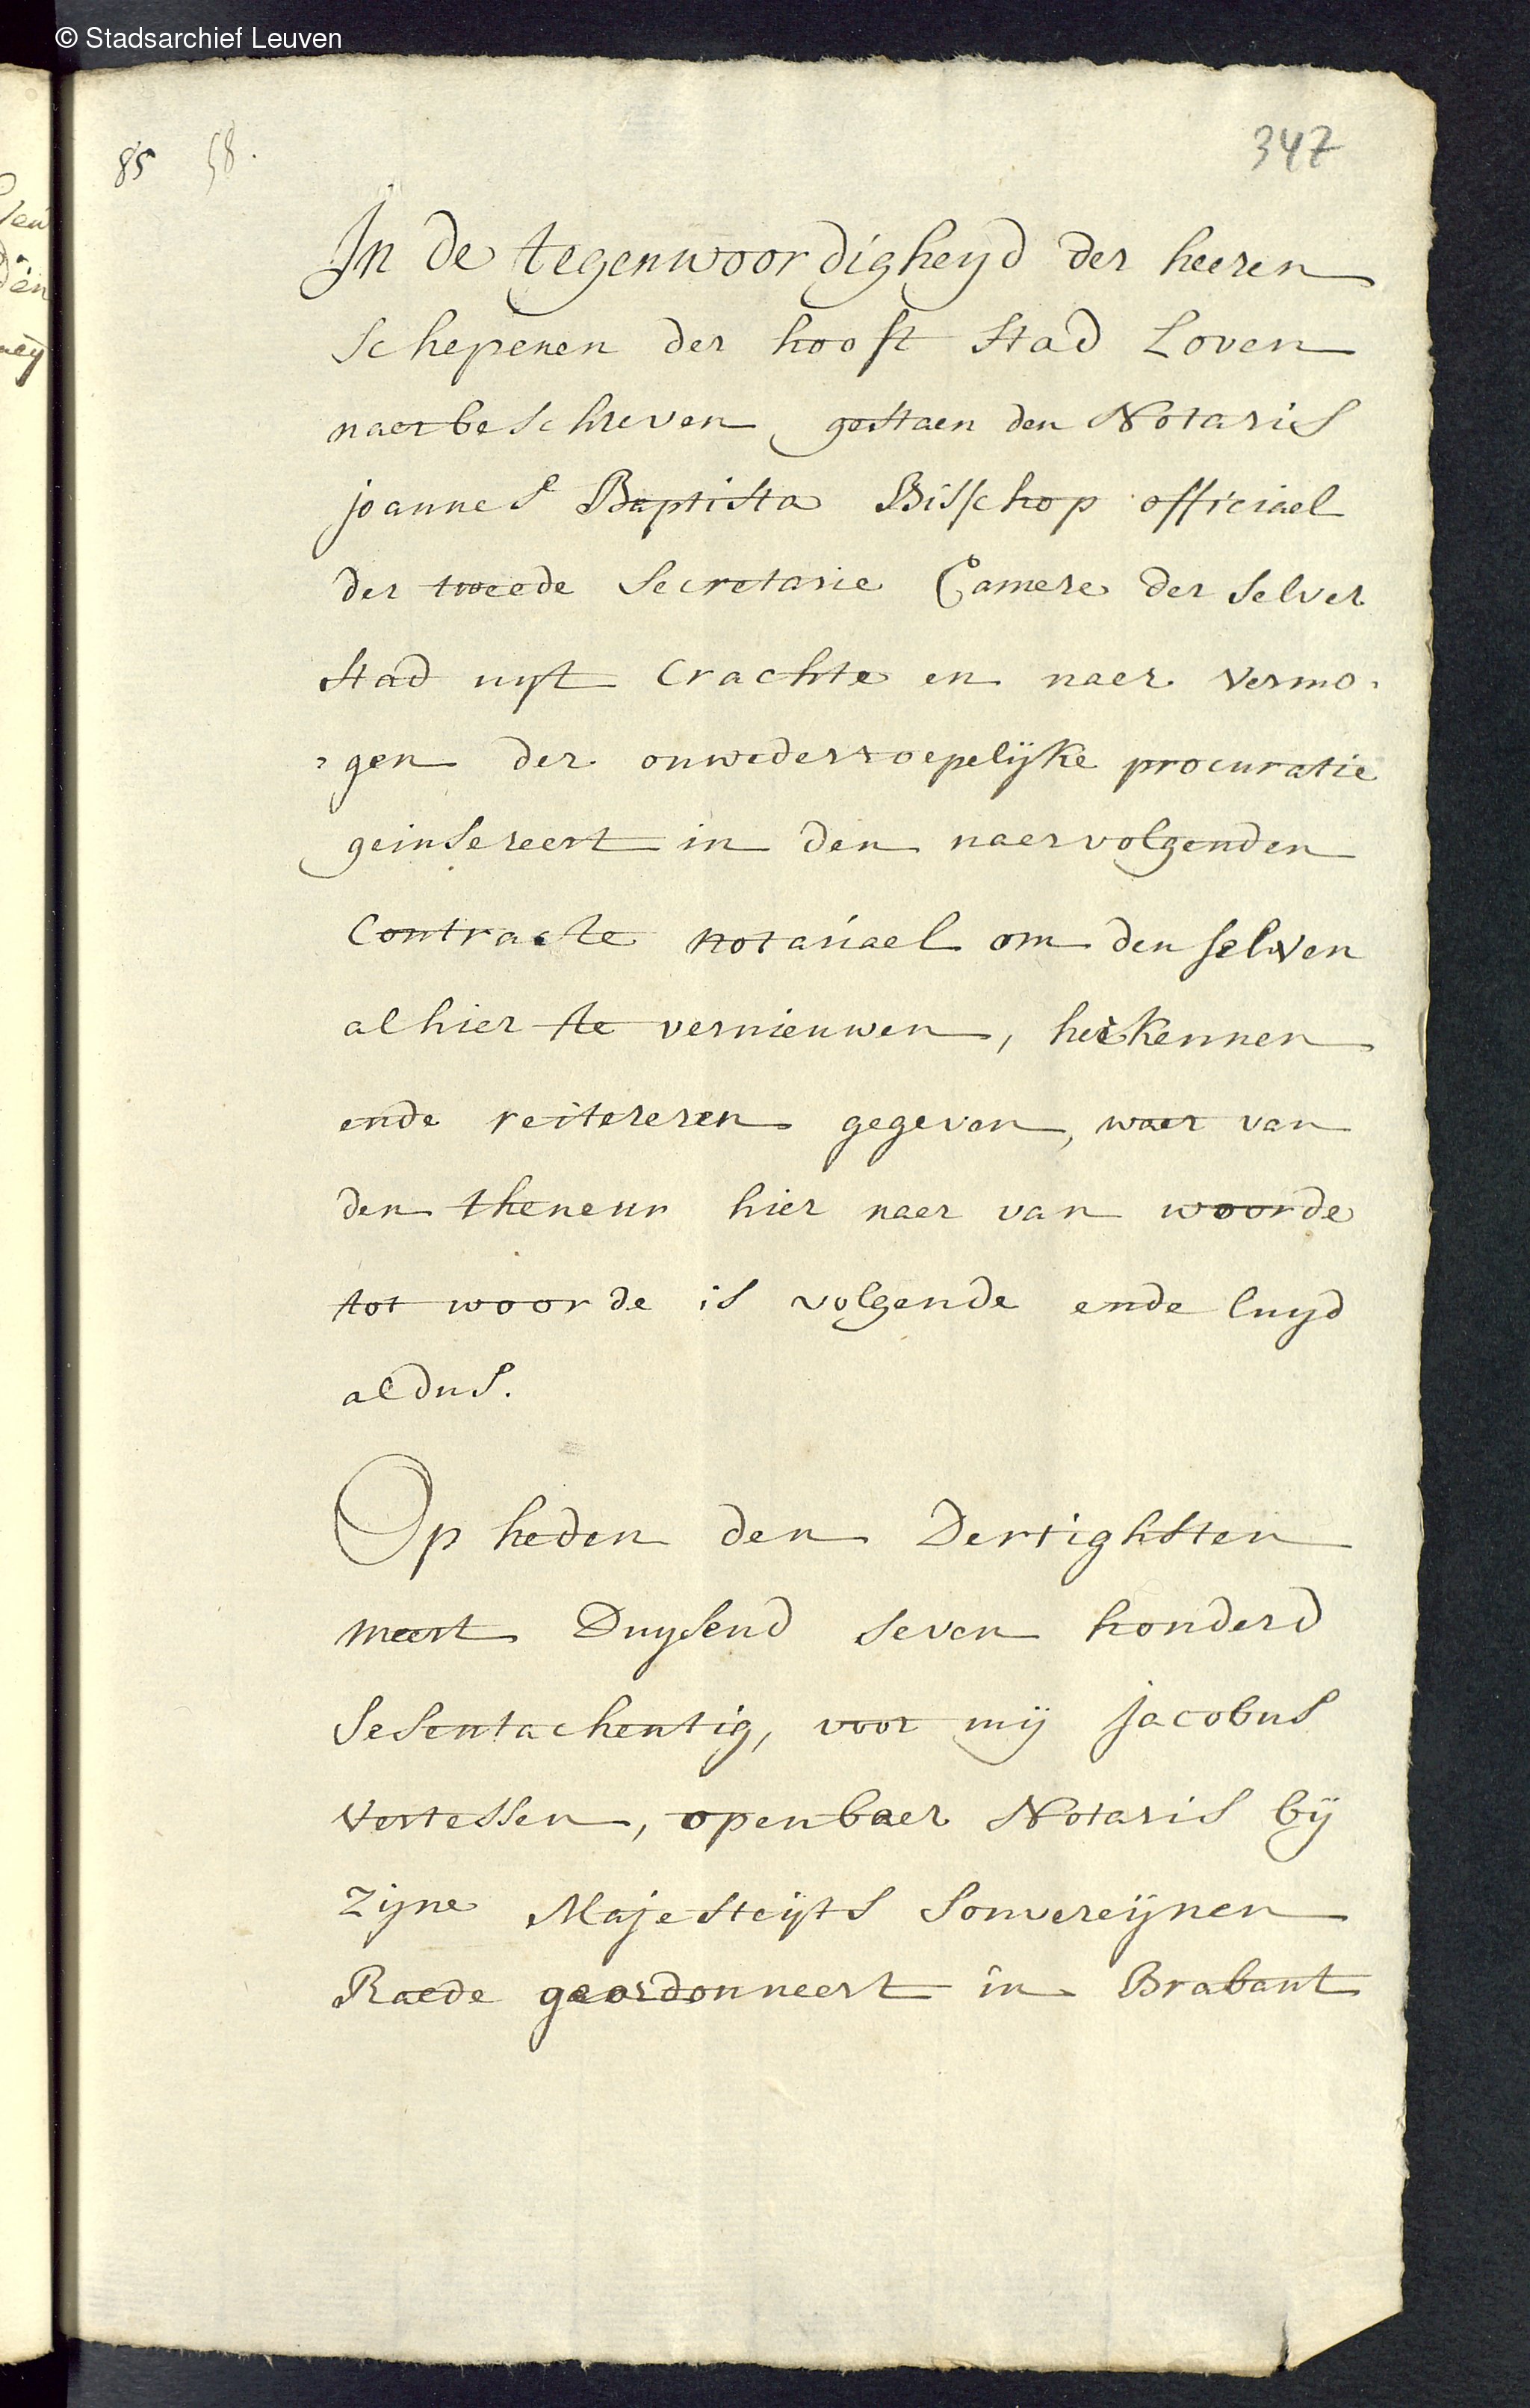 © Stadsarchief Leuven
85 58.
347
In de tegenwoordigheyd der heeren
schepenen der hooft stad Loven
naerbeschreven gestaen den Notaris
joannes Baptista Bisschop officiael
der tweede secretarie Camere der selver
stad uyt crachte en naer vermo-
-gen der onwederroepelijke procuratie
geinsereert in den naervolgenden
Contracte notariael om den selven
alhier te vernieuwen, herkennen
ende reitereren gegeven, waer van
den theneur hier naer van woorde
tot woorde is volgende ende luyd
aldus.
Op heden den Dertighsten
meert Duysend seven honderd
sesentachentig, voor mij jacobus
Vertessen, openbaer Notaris bij
Zijne Majesteijts Souvereijnen
Raede geordonneert in Brabant